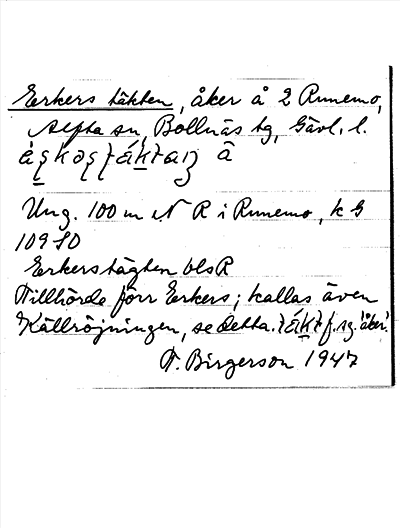 Erkers täkten, åker å 2 Runemo,
Alfta sn, Bollnäs tg, Gävl. l.
Ung. 100 m N R i Runemo, k G
109 80
Erkerstägten blsR
Tillhörde förr Erkers; kallas även
Källröjningen, se detta. f. sg. 'åker'.
T. Birgerson 1947